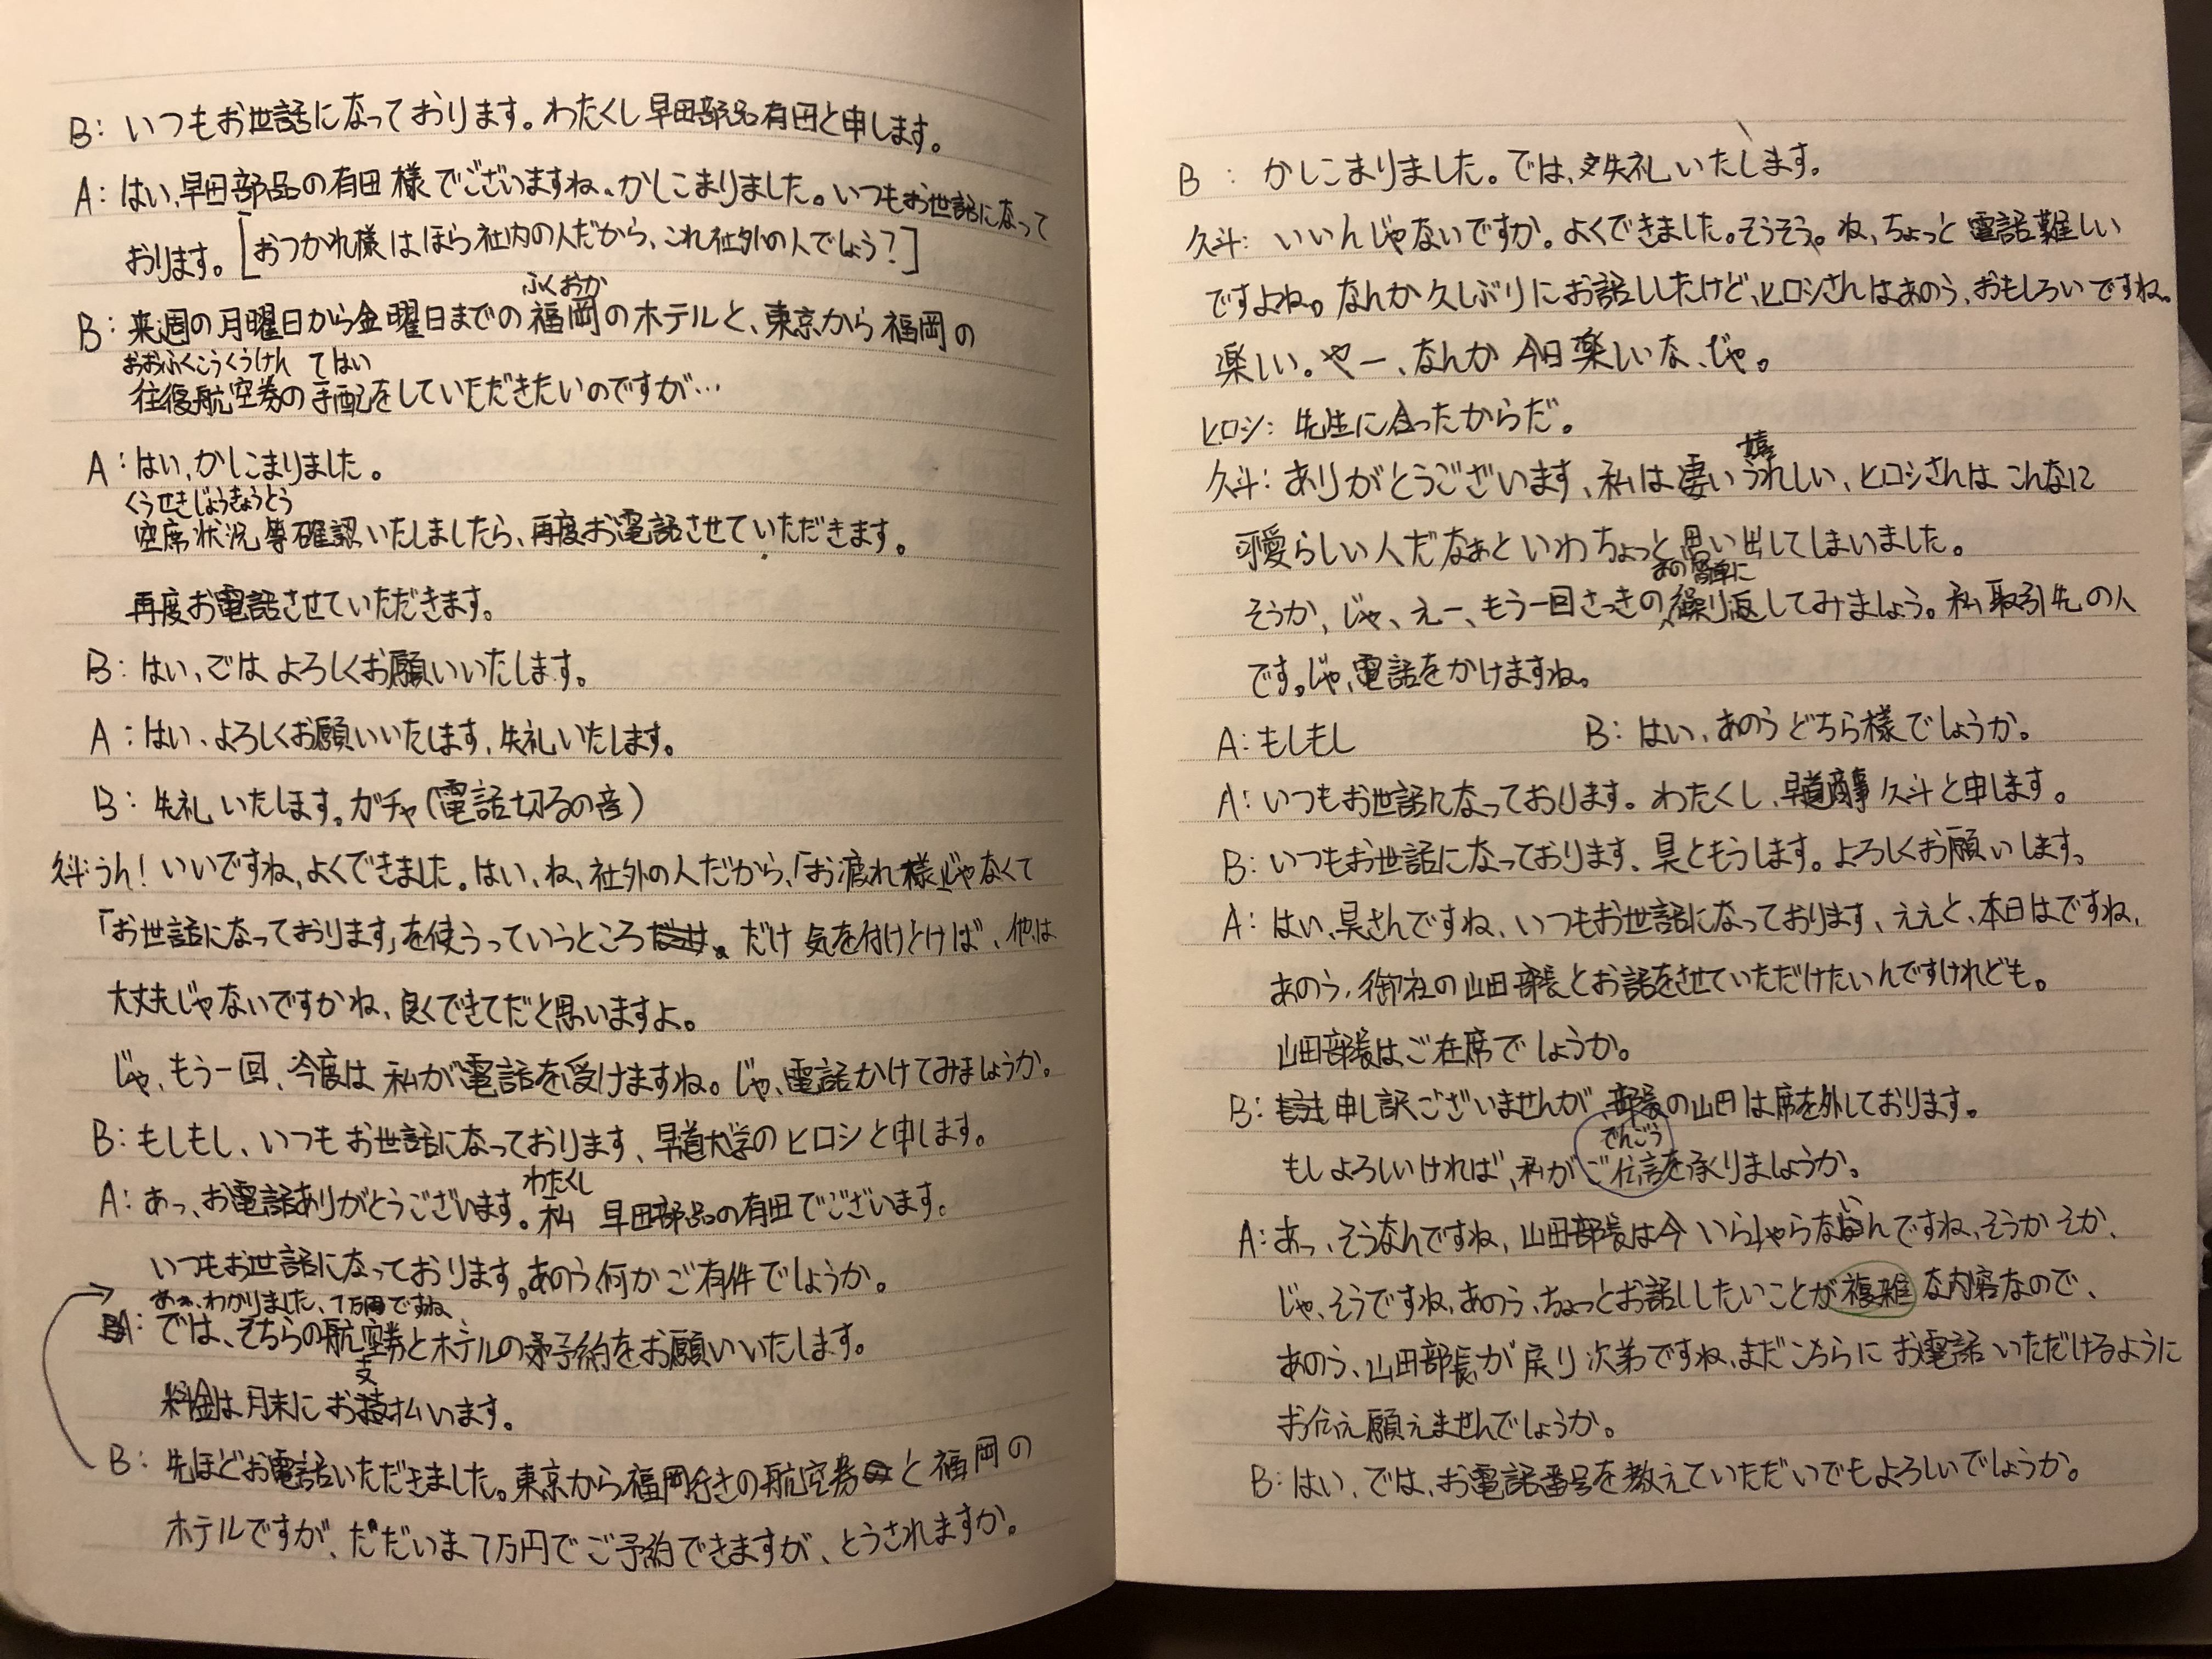 B: いつもお世話になっております。わたくし早田部品有田と申します。
A: はい、早田部品の有田様でございますね、かしこまりました。いつもお世話になって
おります。[おつかれ様はほら社内の人だから、これ社外の人でしょう?]
ふくおか
B: 来週の月曜日から金曜日までの福岡のホテルと、東京から福岡の
おおふくこうくうけん てはい
往復航空券の手配をしていただきたいのですが…
A: はい、かしこまりました。
くうせきじょうきょうとう
空席状況等確認いたしましたら、再度お電話させていただきます。
再度お電話させていただきます。
B: はい、では よろしくお願いいたします。
A: はい、よろしくお願いいたします、失礼いたします。
B: 失礼いたします。ガチャ(電話切るの音)
久斗: うん!いいですね、よくできました。はい、ね、社外の人だから、「お疲れ様」じゃなくて
「お世話になっております」を使うっていうところ だけ 気を付けとけば、他は
大丈夫じゃないですかね、良くできてだと思いますよ。
じゃ、もう一回、今度は私が電話を受けますね。じゃ、電話かけてみましょうか。
B: もしもし、いつもお世話になっております、早道大学のヒロシと申します。
わたくし
A: あっ、お電話ありがとうございます。私 早田部品の有田でございます。
いつもお世話になっております。あのう、何かご有件でしょうか。
あぁ、わかりました、7万円ですね
A: では、そちらの航空券とホテルの予約をお願いいたします。
支
料金は月末にお払います。
B: 先ほどお電話いただきました。東京から福岡行きの航空券と福岡の
ホテルですが、ただいま7万円でご予約できますが、とうされますか。
B : かしこまりました。では、失礼いたします。
久斗: いいんじゃないですか。よくできました。そうそう。ね、ちょっと電話難しい
ですよね。なんか久しぶりにお話ししたけど、ヒロシさんはあのう、おもしろいですね。
楽しい。やー、なんか今日楽しいな、じゃ。
ヒロシ: 先生に会ったからだ。
嬉
久斗: ありがとうございます、私は凄いうれしい、ヒロシさんはこんなに
可愛らしい人だなぁといわちょっと思い出してしまいました。
あの簡単に
そうか、じゃ、えー、もう一回さっきの繰り返してみましょう。私取引先の人
です。じゃ、電話をかけますね。
A: もしもし B: はい、あのうどちら様でしょうか。
A: いつもお世話になっております。わたくし、早道商事久斗と申します。
B: いつもお世話になっております、昊ともうします。よろしくお願いします。
A: はい、昊さんですね、いつもお世話になっております、ええと、本日はですね、
あのう、御社の山田部長とお話をさせていただけたいんですけれども。
山田部長はご在席でしょうか。
B: 申し訳ございませんが、部長の山田は席を外しております。
でんごう
もしよろしいければ、私がご伝言を承りましょうか。
A: あっ、そうなんですね、山田部長は今いらしゃらないんですね、そうかそか、
じゃ、そうですね、あのう、ちょっとお話ししたいことが複雑な内容なので、
あのう、山田部長が戻り次第ですね、まだこちらにお電話いただけるように
お伝え願えませんでしょうか。
B: はい、では、お電話番号を教えていただいでもよろしいでしょうか。